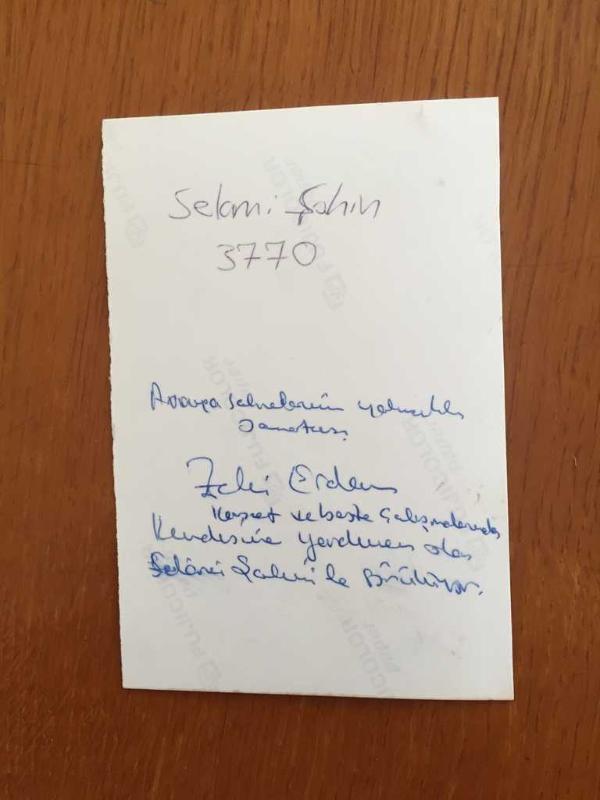 Selami Şahin
3770
Avrupa sahnelerinin
Zeki Erdem
Kaset ve beste çalışmalarında
Kendisine yardımcı olan
Selami Şahin ile
FUJICOLOR